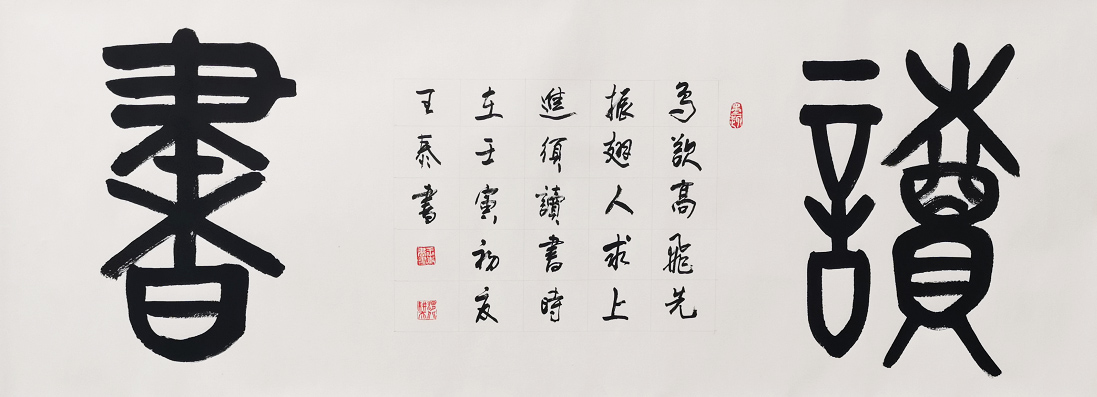 讀
鳥欲高飛先
振翅人求上
進須讀書時
在壬寅初夏
王泰書
書